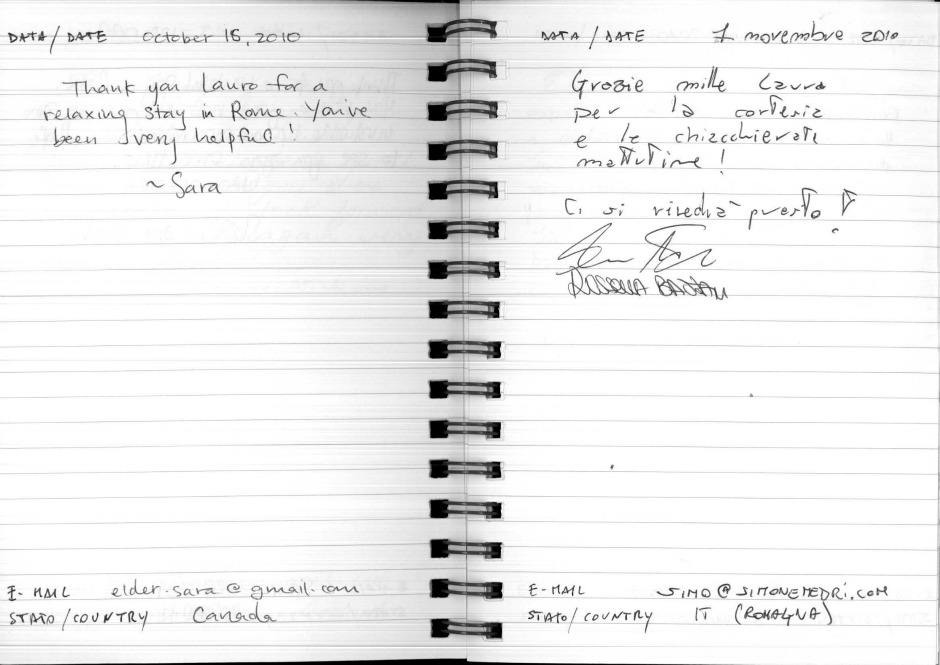 DATA / DATE October 15, 2010
Thank you Lauro for a
relaxing stay in Rome. You've
been very helpful!
~ Sara
E-MAIL elder.sara@gmail.com
STATO/COUNTRY Canada
DATA / DATE 1 novembre 2010
Grazie mille Lauro
per la cortesia
e le chiacchierate
mattutine!
Ci si rivedrà presto
E-MAIL SIMO@SIMONEMEDRI.COM
STATO/COUNTRY IT (ROMAGNA)